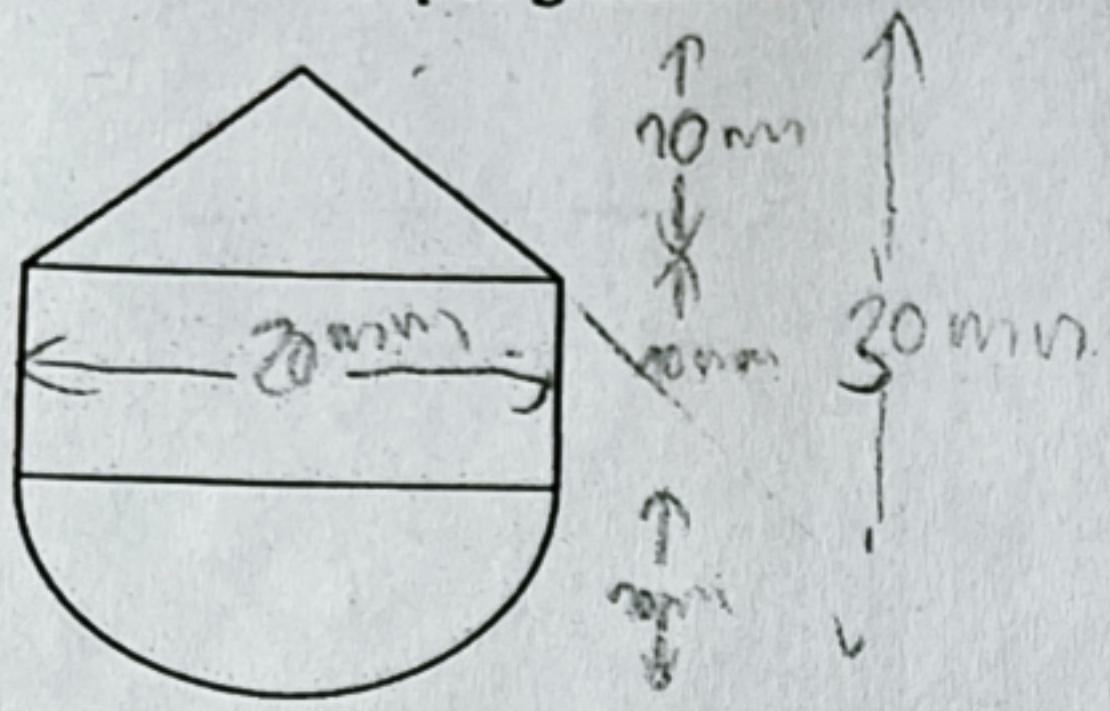 10mm
20mm
10mm
30mm
10mm